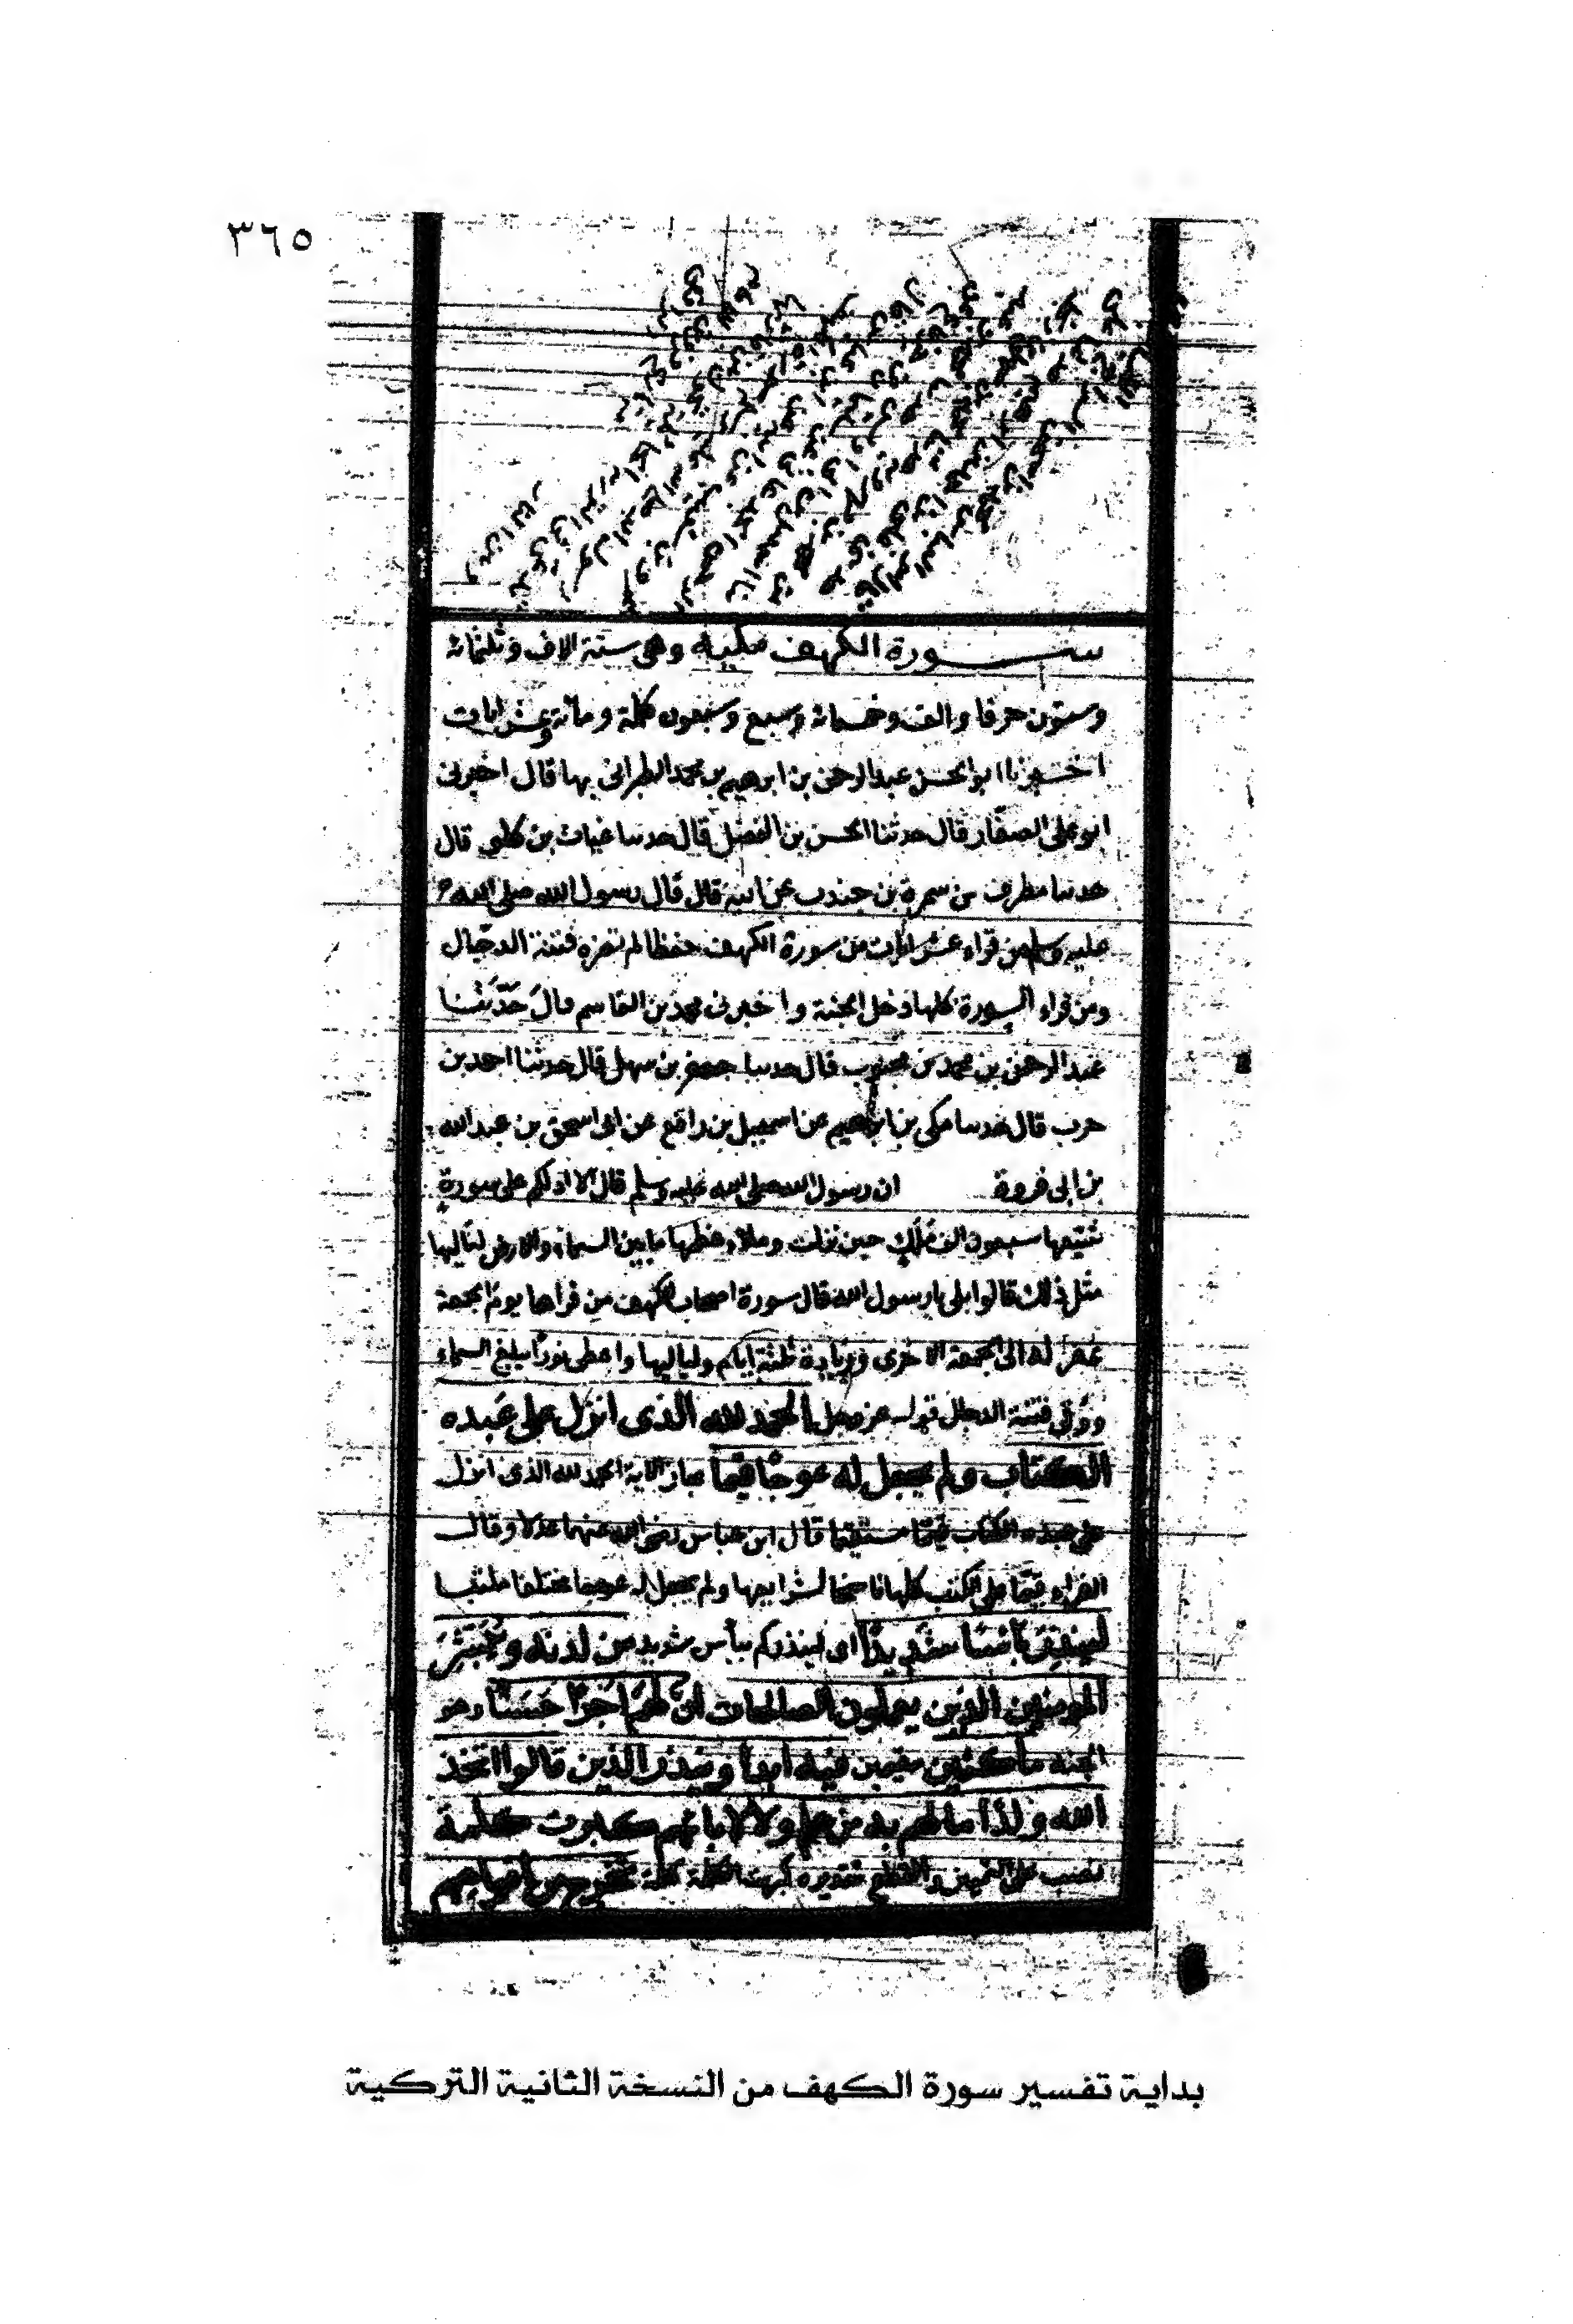 ٣٦٥
ســورة الكهف مكية وهى ستة الاف وثلثمائة
وستون حرفا والف وخمسمائة وسبع وسبعون كلمة ومائة وعشر ايات
اخبرنا ابو الحسن عبد الرحمن بن ابرهيم بن محمد الطبرانى بها قال اخبرنى
ابو على الصفار قال حدثنا الحسن بن الفضل قال حدسا غياث بن كلوب قال
حدسا مطرف بن سمرة بن جندب عن ابيه قال قال رسول الله صلى الله
عليه وسلم من قراء عشر ايات من سورة الكهف حفظا لم تضره فتنة الدجال
ومن قراء السورة كلها دخل الجنة واخبرنى محمد بن القاسم قال حَدَّثَنا
عبد الرحمن بن محمد بن محبوب قال حدسا جعفر بن سهل قال حدثنا احمد بن
حرب قال حدسا مكى بن ابرهيم عن اسمعيل بن رافع عن ابى اسحق بن عبد الله
بن ابى فروة ان رسول الله صلى الله عليه وسلم قال الا ادلكم على سورة
شيّعها سبعون الف ملك حين نزلت وملاء عظمها ما بين السماء والارض لتاليها
مثل ذلك قالوا بلى يا رسول الله قال سورة اصحاب الكهف من قراها يوم الجمعة
غفر له الى الجمعة الاخرى وزيادة ثلثة ايام ولياليها واعطى نورًا يبلغ السماء
ووُقى فتنة الدجال قوله عز وجل الحمد لله الذى انزل على عَبده
الكتاب ولم يجعل له عوجًا قيّما مجاز الاية الحمد لله الذى انزل
على عبده الكتاب قيّمًا مستقيما قال ابن عباس رضى الله عنهما عدلا وقال
الفراء قيّمًا على الكتب كلها ناسخا لشرايعها ولم يجعل له عوجا مختلفا ملتبسا
لينذر بأسًا شديدًا اى لينذركم ببأس شديد من لدنه ويُبَشّرَ
المومنين الذين يعملون الصالحات انّ لهُم اجرًا حَسَنًا وهو
الجنة ماكثين مقيمين فيه ابدًا وينذر الذين قالوا اتّخذ
الله ولدًا ما لهم به من علم ولا لابائهم كبرت كلمة
نصب على التمييز والقطع تقديره كبرت الكلمة كلمة تخرج من أفواههم
بداية تفسير سورة الكهف من النسخة الثانية التركية